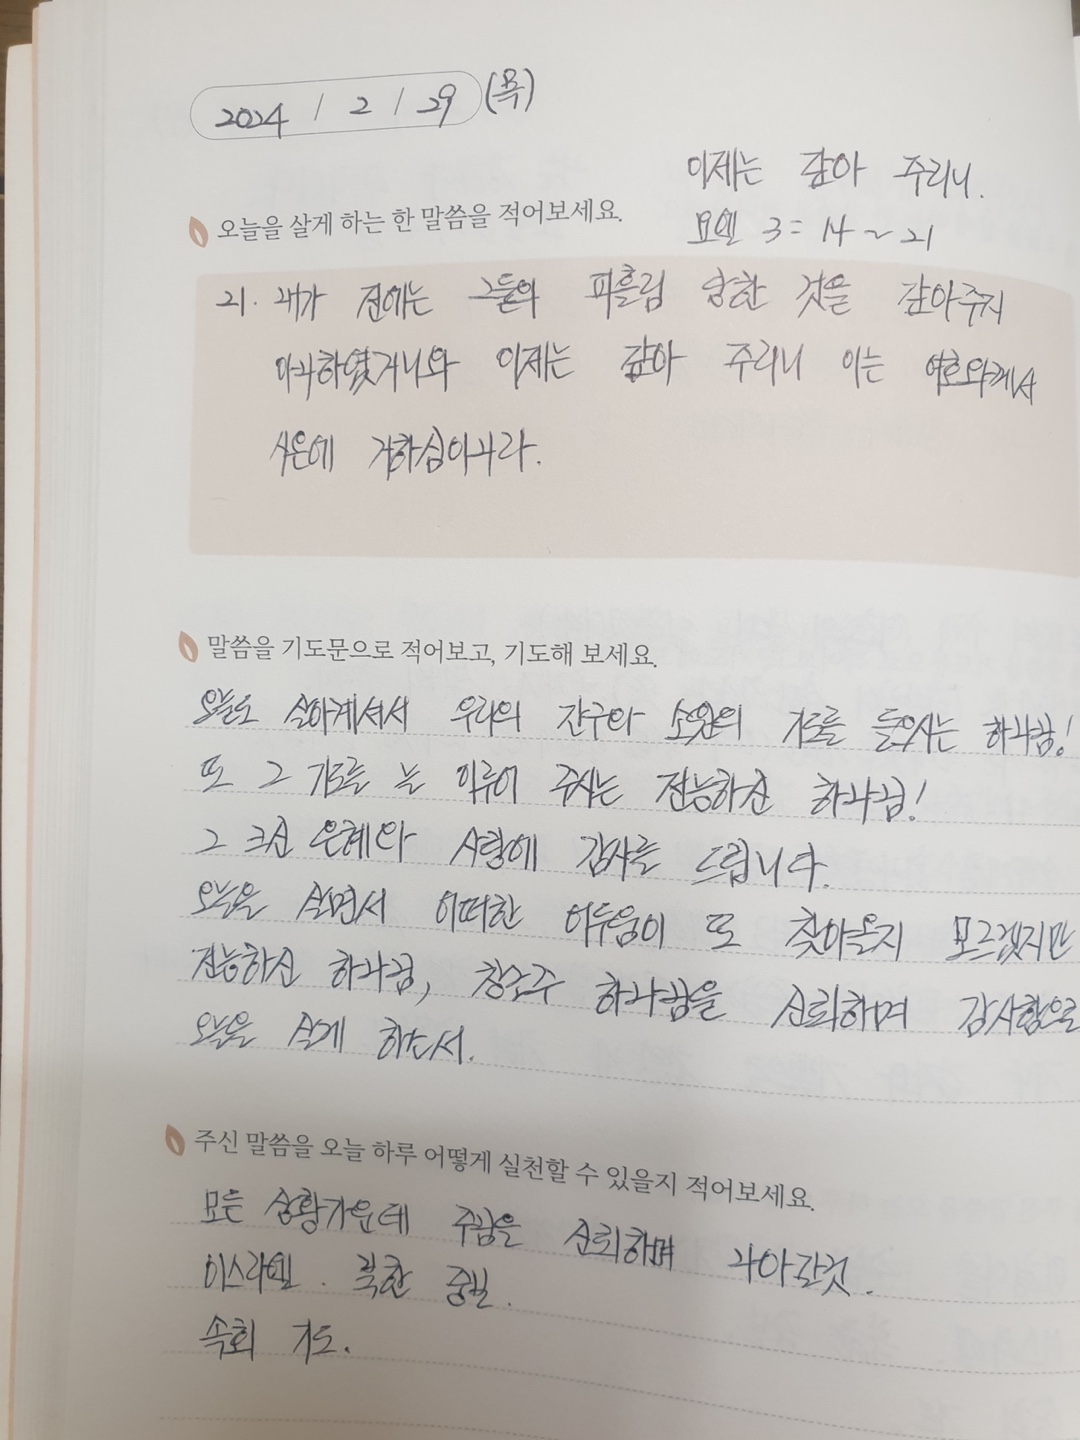 2024 / 2 / 29 (목)
이제는 갚아 주리니.
오늘을 살게 하는 한 말씀을 적어보세요.
요엘 3 = 14 ~ 21
21. 내가 전에는 그들의 피흘림 당한 것을 갚아주지
아니하였거니와 이제는 갚아 주리니 이는 여호와께서
시온에 거하심이니라.
말씀을 기도문으로 적어보고, 기도해 보세요.
오늘도 살아계셔서 우리의 간구와 소원의 기도를 들으시는 하나님!
또 그 기도를 늘 이루어 주시는 전능하신 하나님!
그 크신 은혜와 사랑에 감사를 드립니다.
오늘을 살면서 어떠한 어두움이 또 찾아올지 모르겠지만
전능하신 하나님, 창조주 하나님을 신뢰하며 감사함으로
오늘을 살게 하소서.
주신 말씀을 오늘 하루 어떻게 실천할 수 있을지 적어보세요.
모든 상황가운데 주님을 신뢰하며 나아갈것.
이스라엘. 북한 중보.
속회 기도.